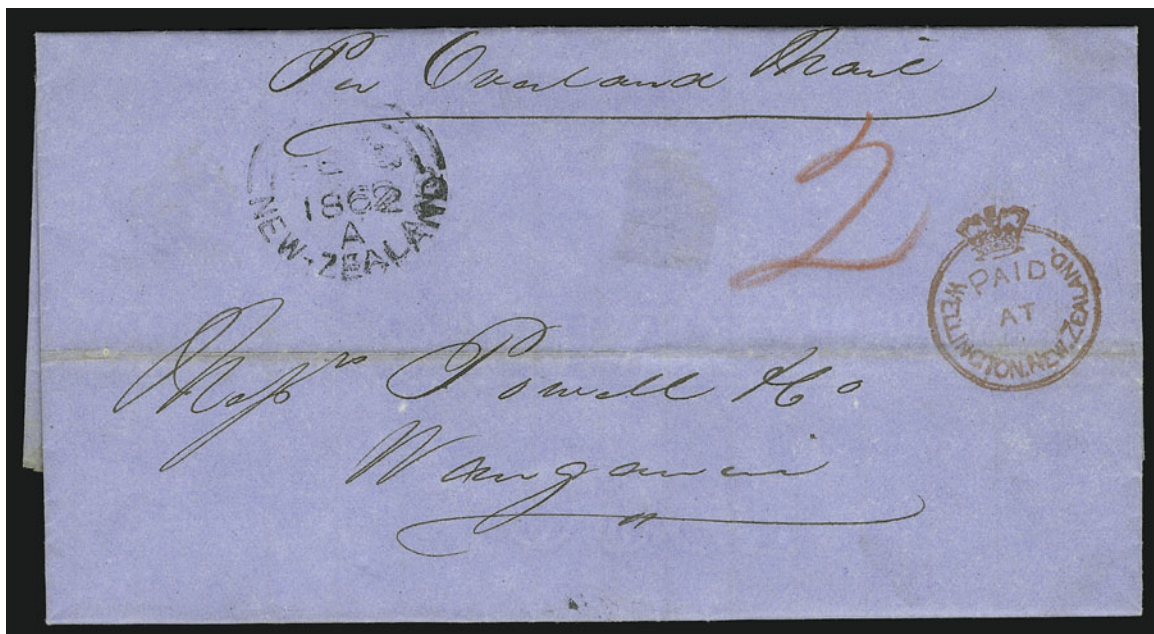 Per Overland Mail
1862
A
NEW-ZEALAND
2
PAID
AT
WELLINGTON.NEW.ZEALAND.
Messrs Powell & Co
Wanganui